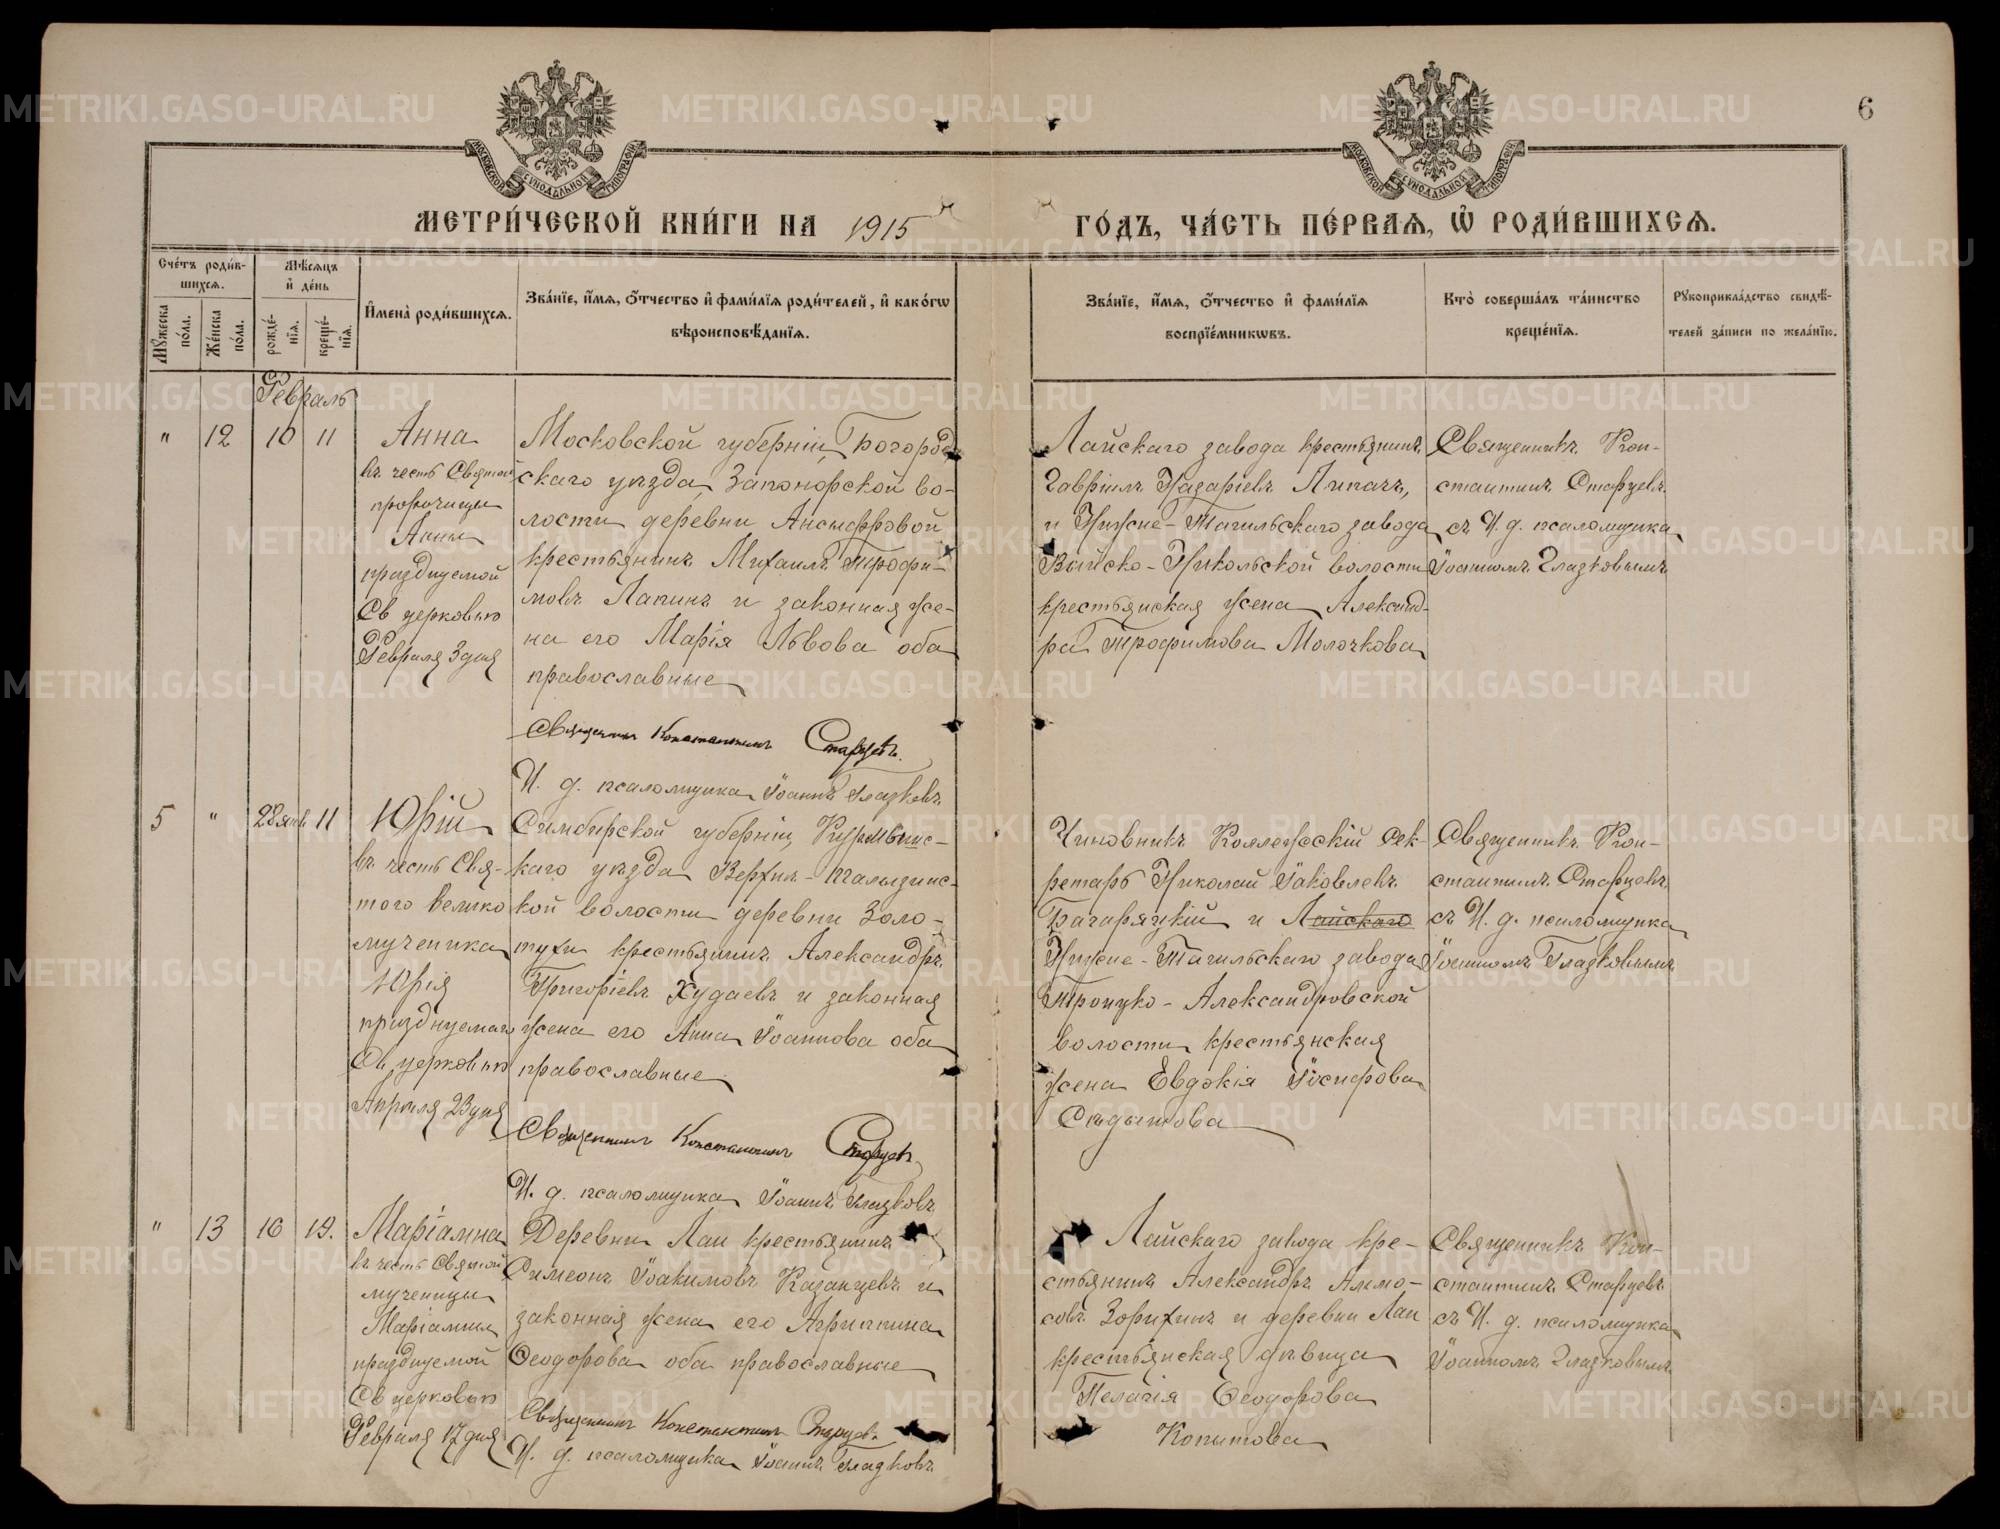 6
МОСКОВСКОЙ СУНОДАЛЬНОЙ ТИПОГРАФІИ
МОСКОВСКОЙ СУНОДАЛЬНОЙ ТИПОГРАФІИ
МЕТРИ́ЧЕСКОЙ КНИ́ГИ НА 1915
ГО́ДЪ, ЧА́СТЬ ПЕ́РВАѦ, Ѡ РОДИ́ВШИХСѦ.
Сче́тъ роди́в-
шихсѧ.
Мѣ́сѧцъ
и҆ де́нь
Му́жеска
по́ла.
Же́нска
по́ла.
рожде́-
нїѧ.
креще́-
нїѧ.
И҆мена̀ роди́вшихсѧ.
Зва́нїе, и҆́мѧ, ѻ҆́тчество и҆ фами́лїѧ роди́телей, и҆ како́гѡ
вѣроисповѣ́данїѧ.
Зва́нїе, и҆́мѧ, ѻ҆́тчество и҆ фами́лїѧ
воспрїе́мникѡвъ.
Кто̀ соверша́лъ та́инство
креще́нїѧ.
Рꙋкоприкла́дство свидѣ́-
телей за́писи по жела́нїю.
Февраль
" 12 10 11
Анна
въ честь Святой
пророчицы
Анны
празднуемой
Св церковью
Февраля 3 дня
Московской губерніи, Богород-
скаго уѣзда, Запонорской во-
лости деревни Анцыфровой
крестьянинъ Михаилъ Трофи-
мовъ Лапинъ и законная же-
на его Марія Львова оба
православные
Священникъ Константинъ Старцевъ.
И. д. псаломщика Іоаннъ Гладковъ
Лайскаго завода крестьянинъ
Гавріилъ Назаріевъ Липачъ,
и Нижне-Тагильскаго завода
Выйско-Никольской волости
крестьянская жена Александ-
ра Трофимова Молочкова
Священникъ Кон-
стантинъ Старцевъ
съ И. д. псаломщика
Іоанномъ Гладковымъ
5 " 28 янв 11
Юрій
въ честь Свя-
того велико
мученика
Юрія
празднуемаго
Св церковью
Апрѣля 23 дня
Симбирской губерніи, Курмышс-
каго уѣзда Верхне-Талызинс-
кой волости деревни Золо-
тухи крестьянинъ Александръ
Григоріевъ Худаевъ и законная
жена его Анна Іоаннова оба
православные
Священникъ Константинъ Старцевъ
И. д. псаломщика Іоаннъ Гладковъ
Чиновникъ Коллежскій Сек-
ретарь Николай Іаковлевъ
Багаряцкій и Лайскаго
Нижне-Тагильскаго завода
Троицко-Александровской
волости крестьянская
жена Евдокія Іосифова
Сѣдышова
Священникъ Кон-
стантинъ Старцевъ
съ И. д. псаломщика
Іоанномъ Гладковымъ
" 13 16 19.
Маріамна
въ честь Святой
мученицы
Маріамны
празднуемой
Св церковью
Февраля 17 дня
Деревни Лаи крестьянинъ
Симеонъ Іоакимовъ Казанцевъ и
законная жена его Агриппина
Ѳеодорова оба православные
Священникъ Константинъ Старцевъ.
И. д. псаломщика Іоаннъ Гладковъ
Лайскаго завода кре-
стьянинъ Александръ Аммо-
совъ Зорихинъ и деревни Лаи
крестьянская дѣвица
Пелагія Ѳеодорова
Копытова
Священникъ Кон-
стантинъ Старцевъ
съ И. д. псаломщика
Іоанномъ Гладковымъ
METRIKI.GASO-URAL.RU